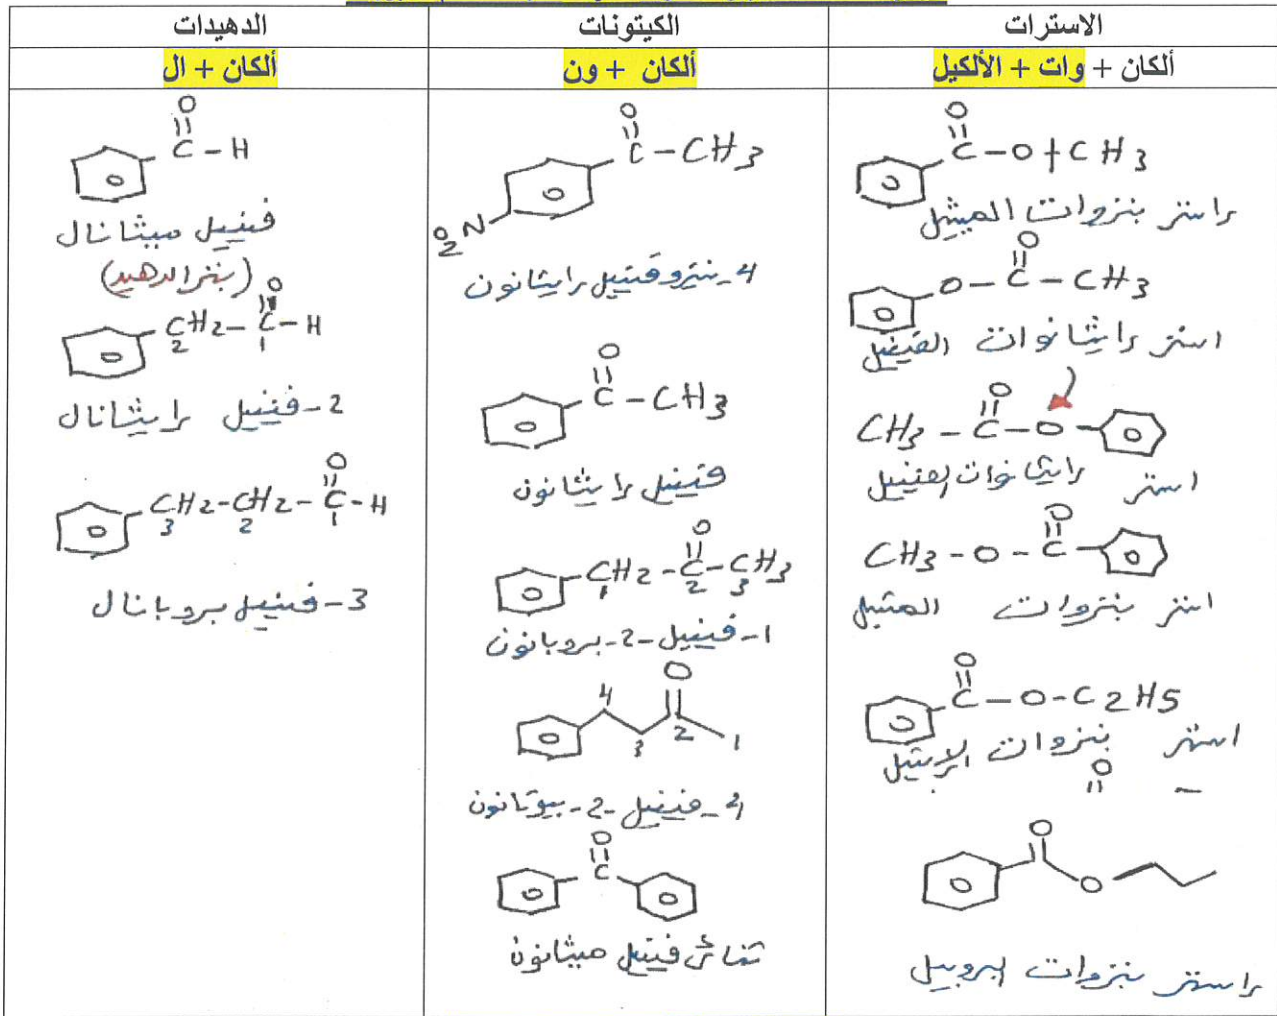 الاسترات
ألكان + وات + الألكيل
C-O+CH3
O
استر بنزوات الميثيل
O-C-CH3
O
استر ايثانوات الفينيل
CH3-C-O-
O
استر ايثانوات الفينيل
CH3-O-C-
O
استر بنزوات الميثيل
C-O-C2H5
O
استر بنزوات الايثيل
O
O
O
استر بنزوات البروبيل
الكيتونات
ألكان + ون
C-CH3
O
O2N
4-نيتروفينيل ايثانون
C-CH3
O
فينيل ايثانون
CH2-C-CH3
O
1 2 3
1-فينيل-2-بروبانون
O
4 3 2 1
4-فينيل-2-بيوتانون
O
C
ثنائي فينيل ميثانون
الدهيدات
ألكان + ال
C-H
O
فينيل ميثانال
(بنزالدهيد)
CH2-C-H
O
2 1
2-فينيل ايثانال
CH2-CH2-C-H
O
3 2 1
3-فينيل بروبانال